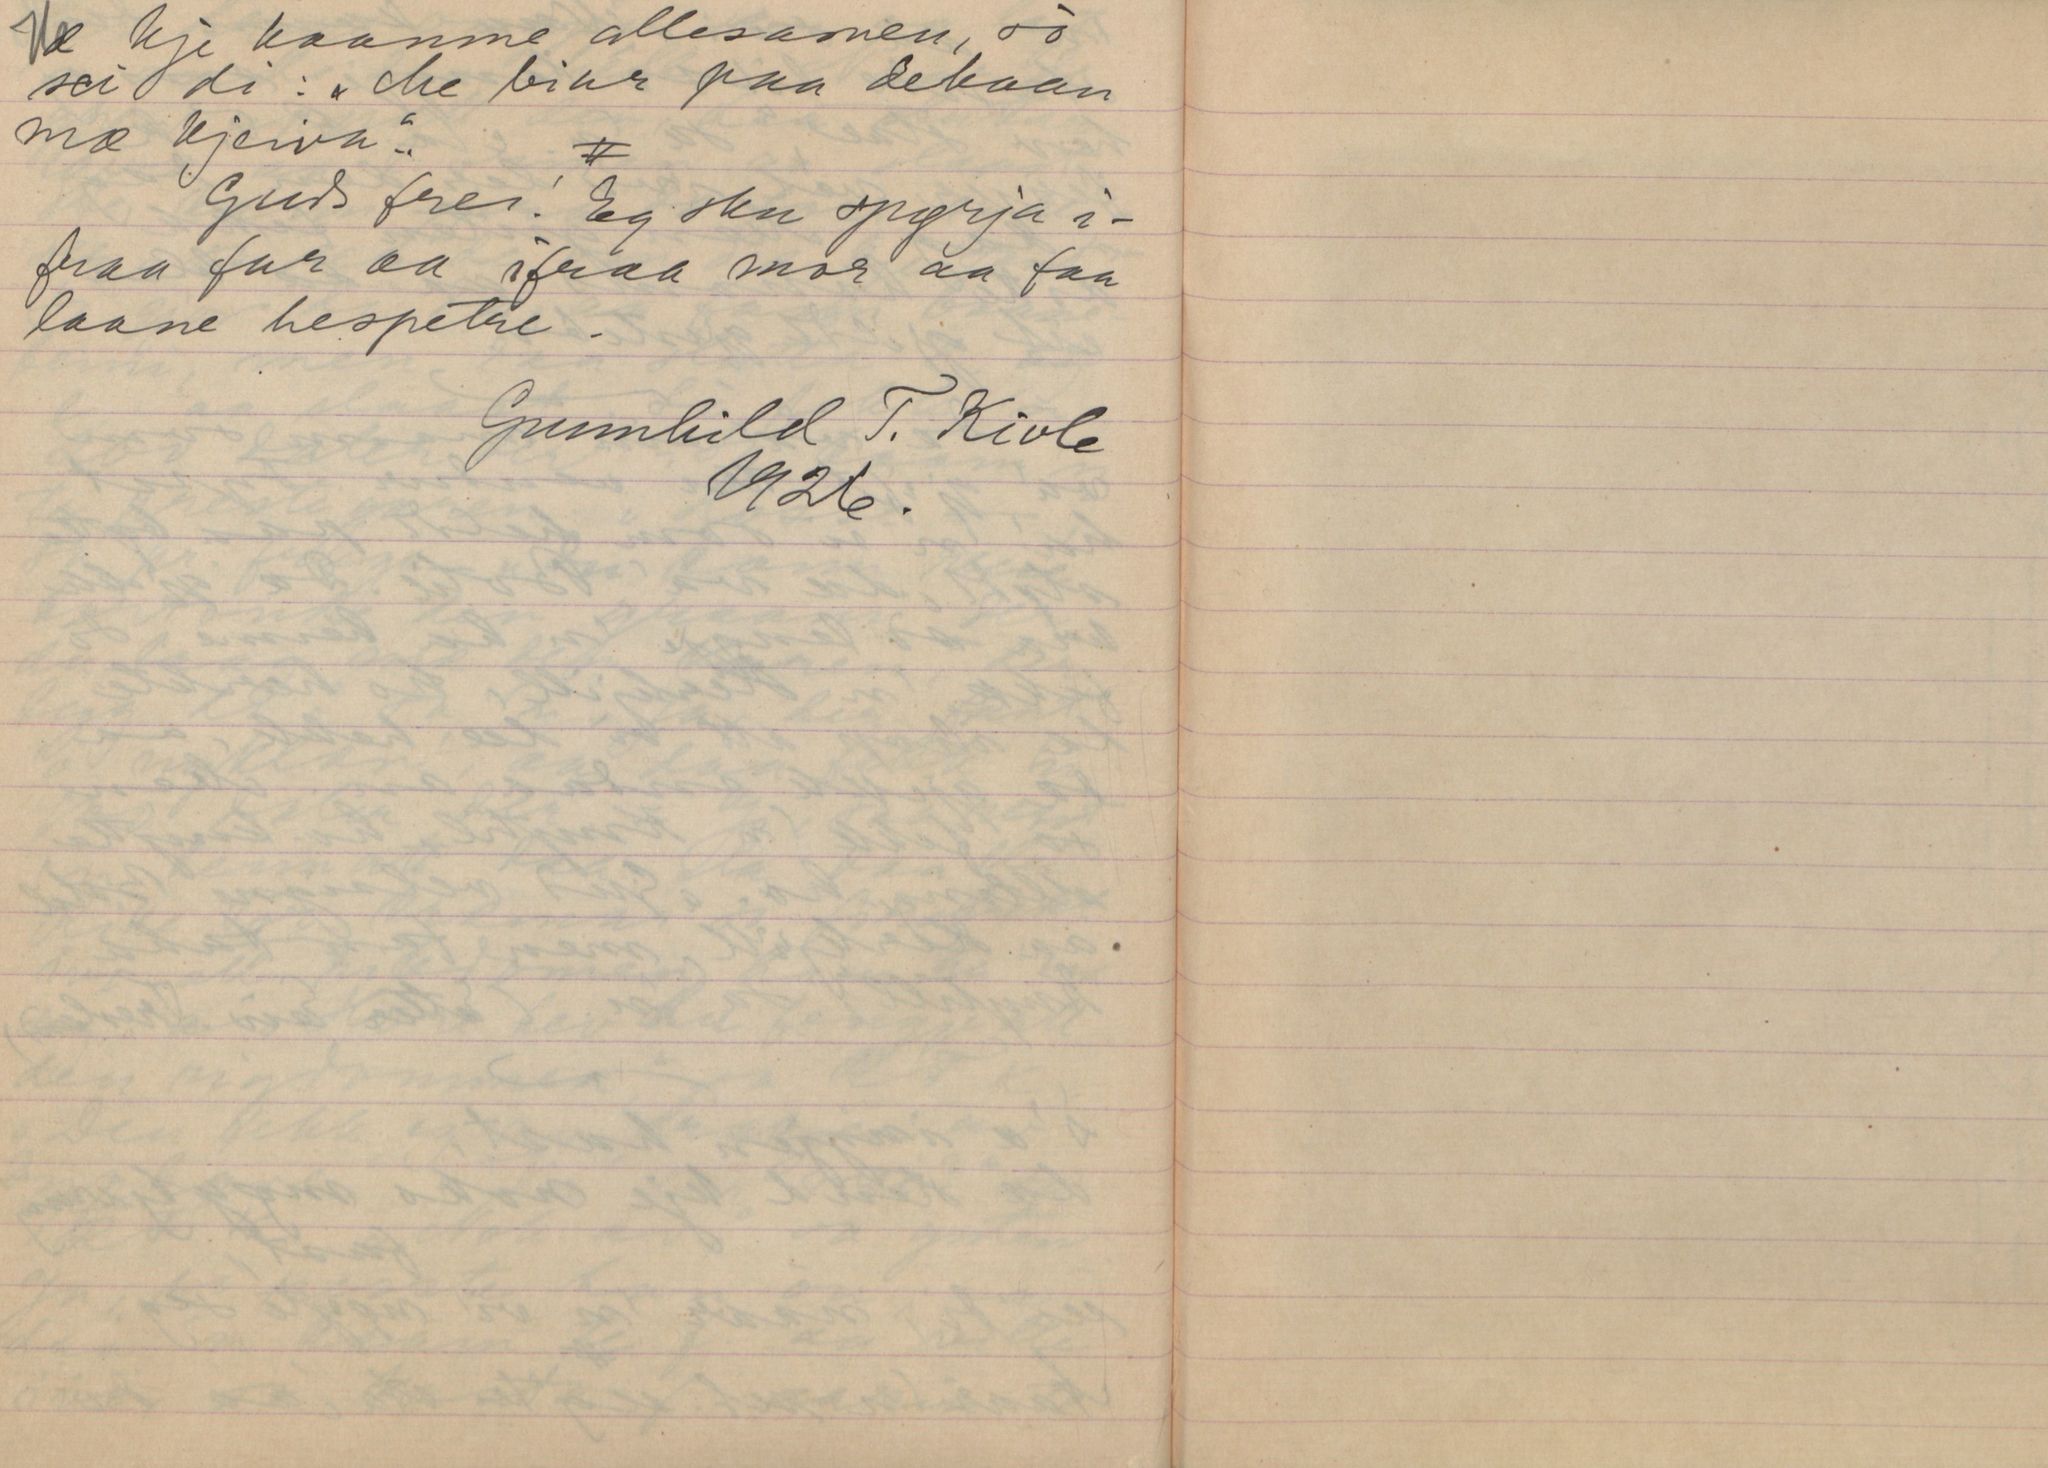 Væ kje kaanme allesamen, so
sei di: "dhe biar paa dekaan
mæ kjeiva".
Guds frei! Eg sku spyrja i-
fraa far aa ifraa mor aa faa
laane hespetre.
Gunnhild T. Kivle
1926.